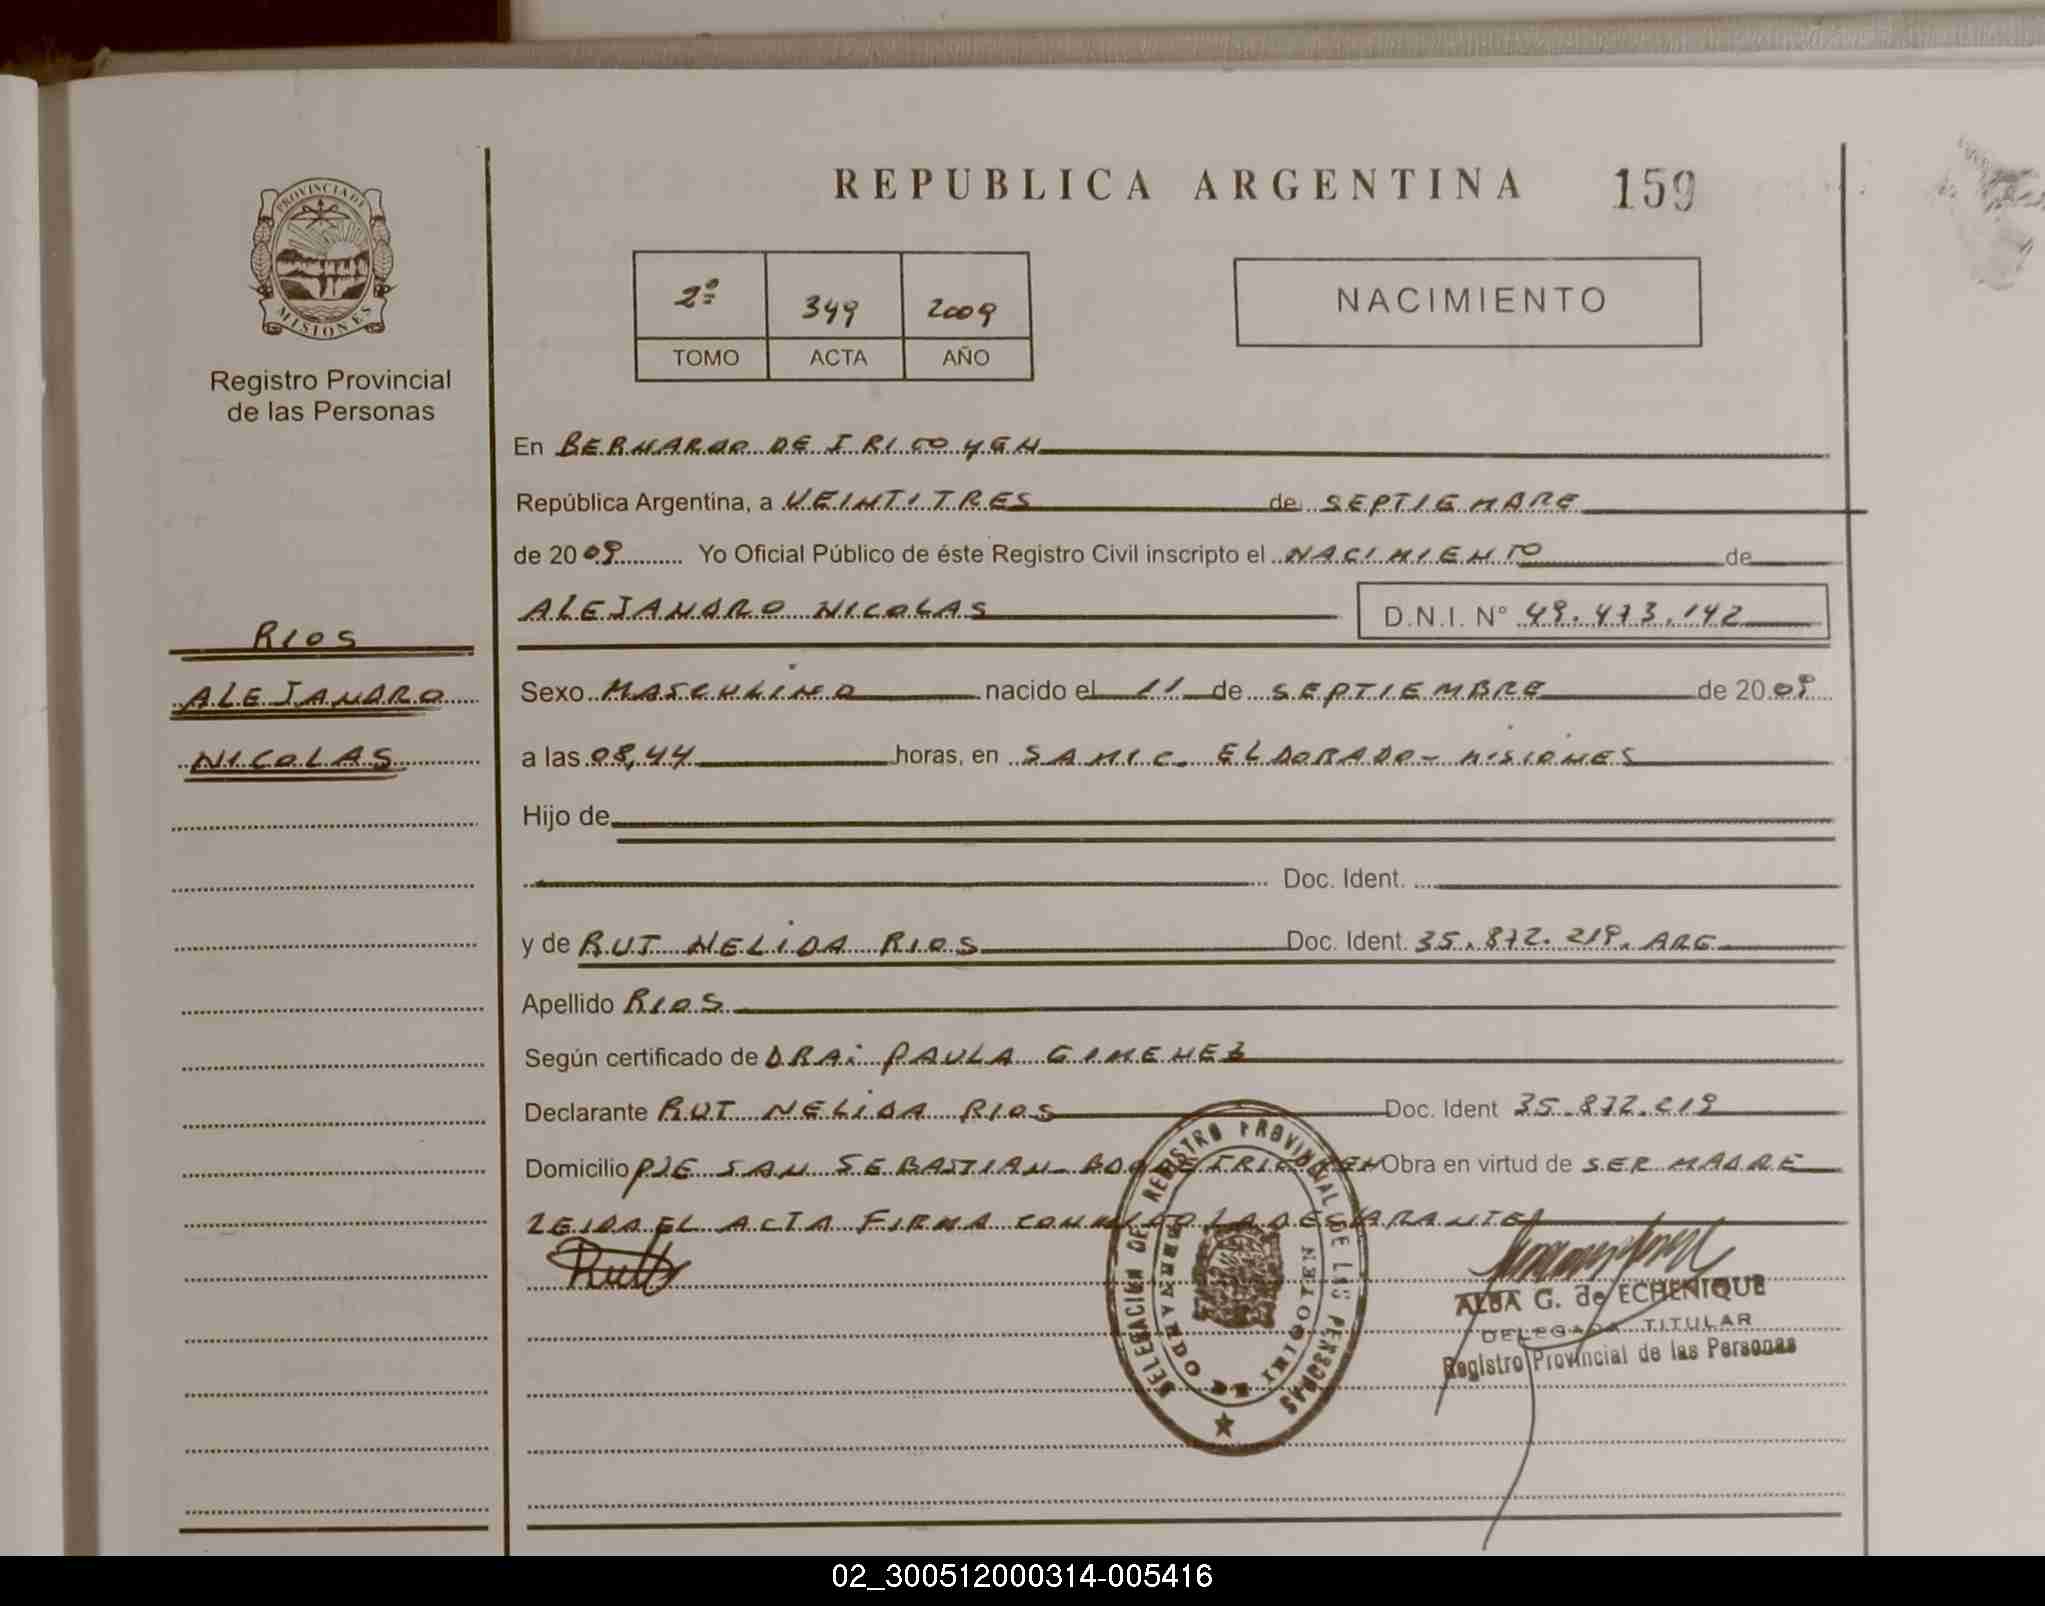 REPUBLICA ARGENTINA 159
PROVINCIA DE
MISIONES
Registro Provincial
de las Personas
2º 349 2009
TOMO ACTA AÑO
NACIMIENTO
En BERNARDO DE IRIGOYEN
República Argentina, a VEINTITRES de SEPTIEMBRE
de 2009 Yo Oficial Público de éste Registro Civil inscripto el NACIMIENTO de
ALEJANDRO NICOLAS D.N.I. N° 49.473.142
RIOS
ALEJANDRO
NICOLAS
Sexo MASCULINO nacido el 11 de SEPTIEMBRE de 2009
a las 08,44 horas, en SAMIC. ELDORADO - MISIONES
Hijo de
Doc. Ident.
y de RUT NELIDA RIOS Doc. Ident. 35.872.219. ARG
Apellido RIOS
Según certificado de DRA: PAULA GIMENEZ
Declarante RUT NELIDA RIOS Doc. Ident 35.872.219
Domicilio PJE SAN SEBASTIAN BDO DE IRIGOYEN Obra en virtud de SER MADRE
LEIDA EL ACTA FIRMA CONMIGO LA DECLARANTE
Ruth
DELEGACIÓN DEL REGISTRO PROVINCIAL DE LAS PERSONAS
BERNARDO DE IRIGOYEN
ALBA G. de ECHENIQUE
DELEGADA TITULAR
Registro Provincial de las Personas
02_300512000314-005416